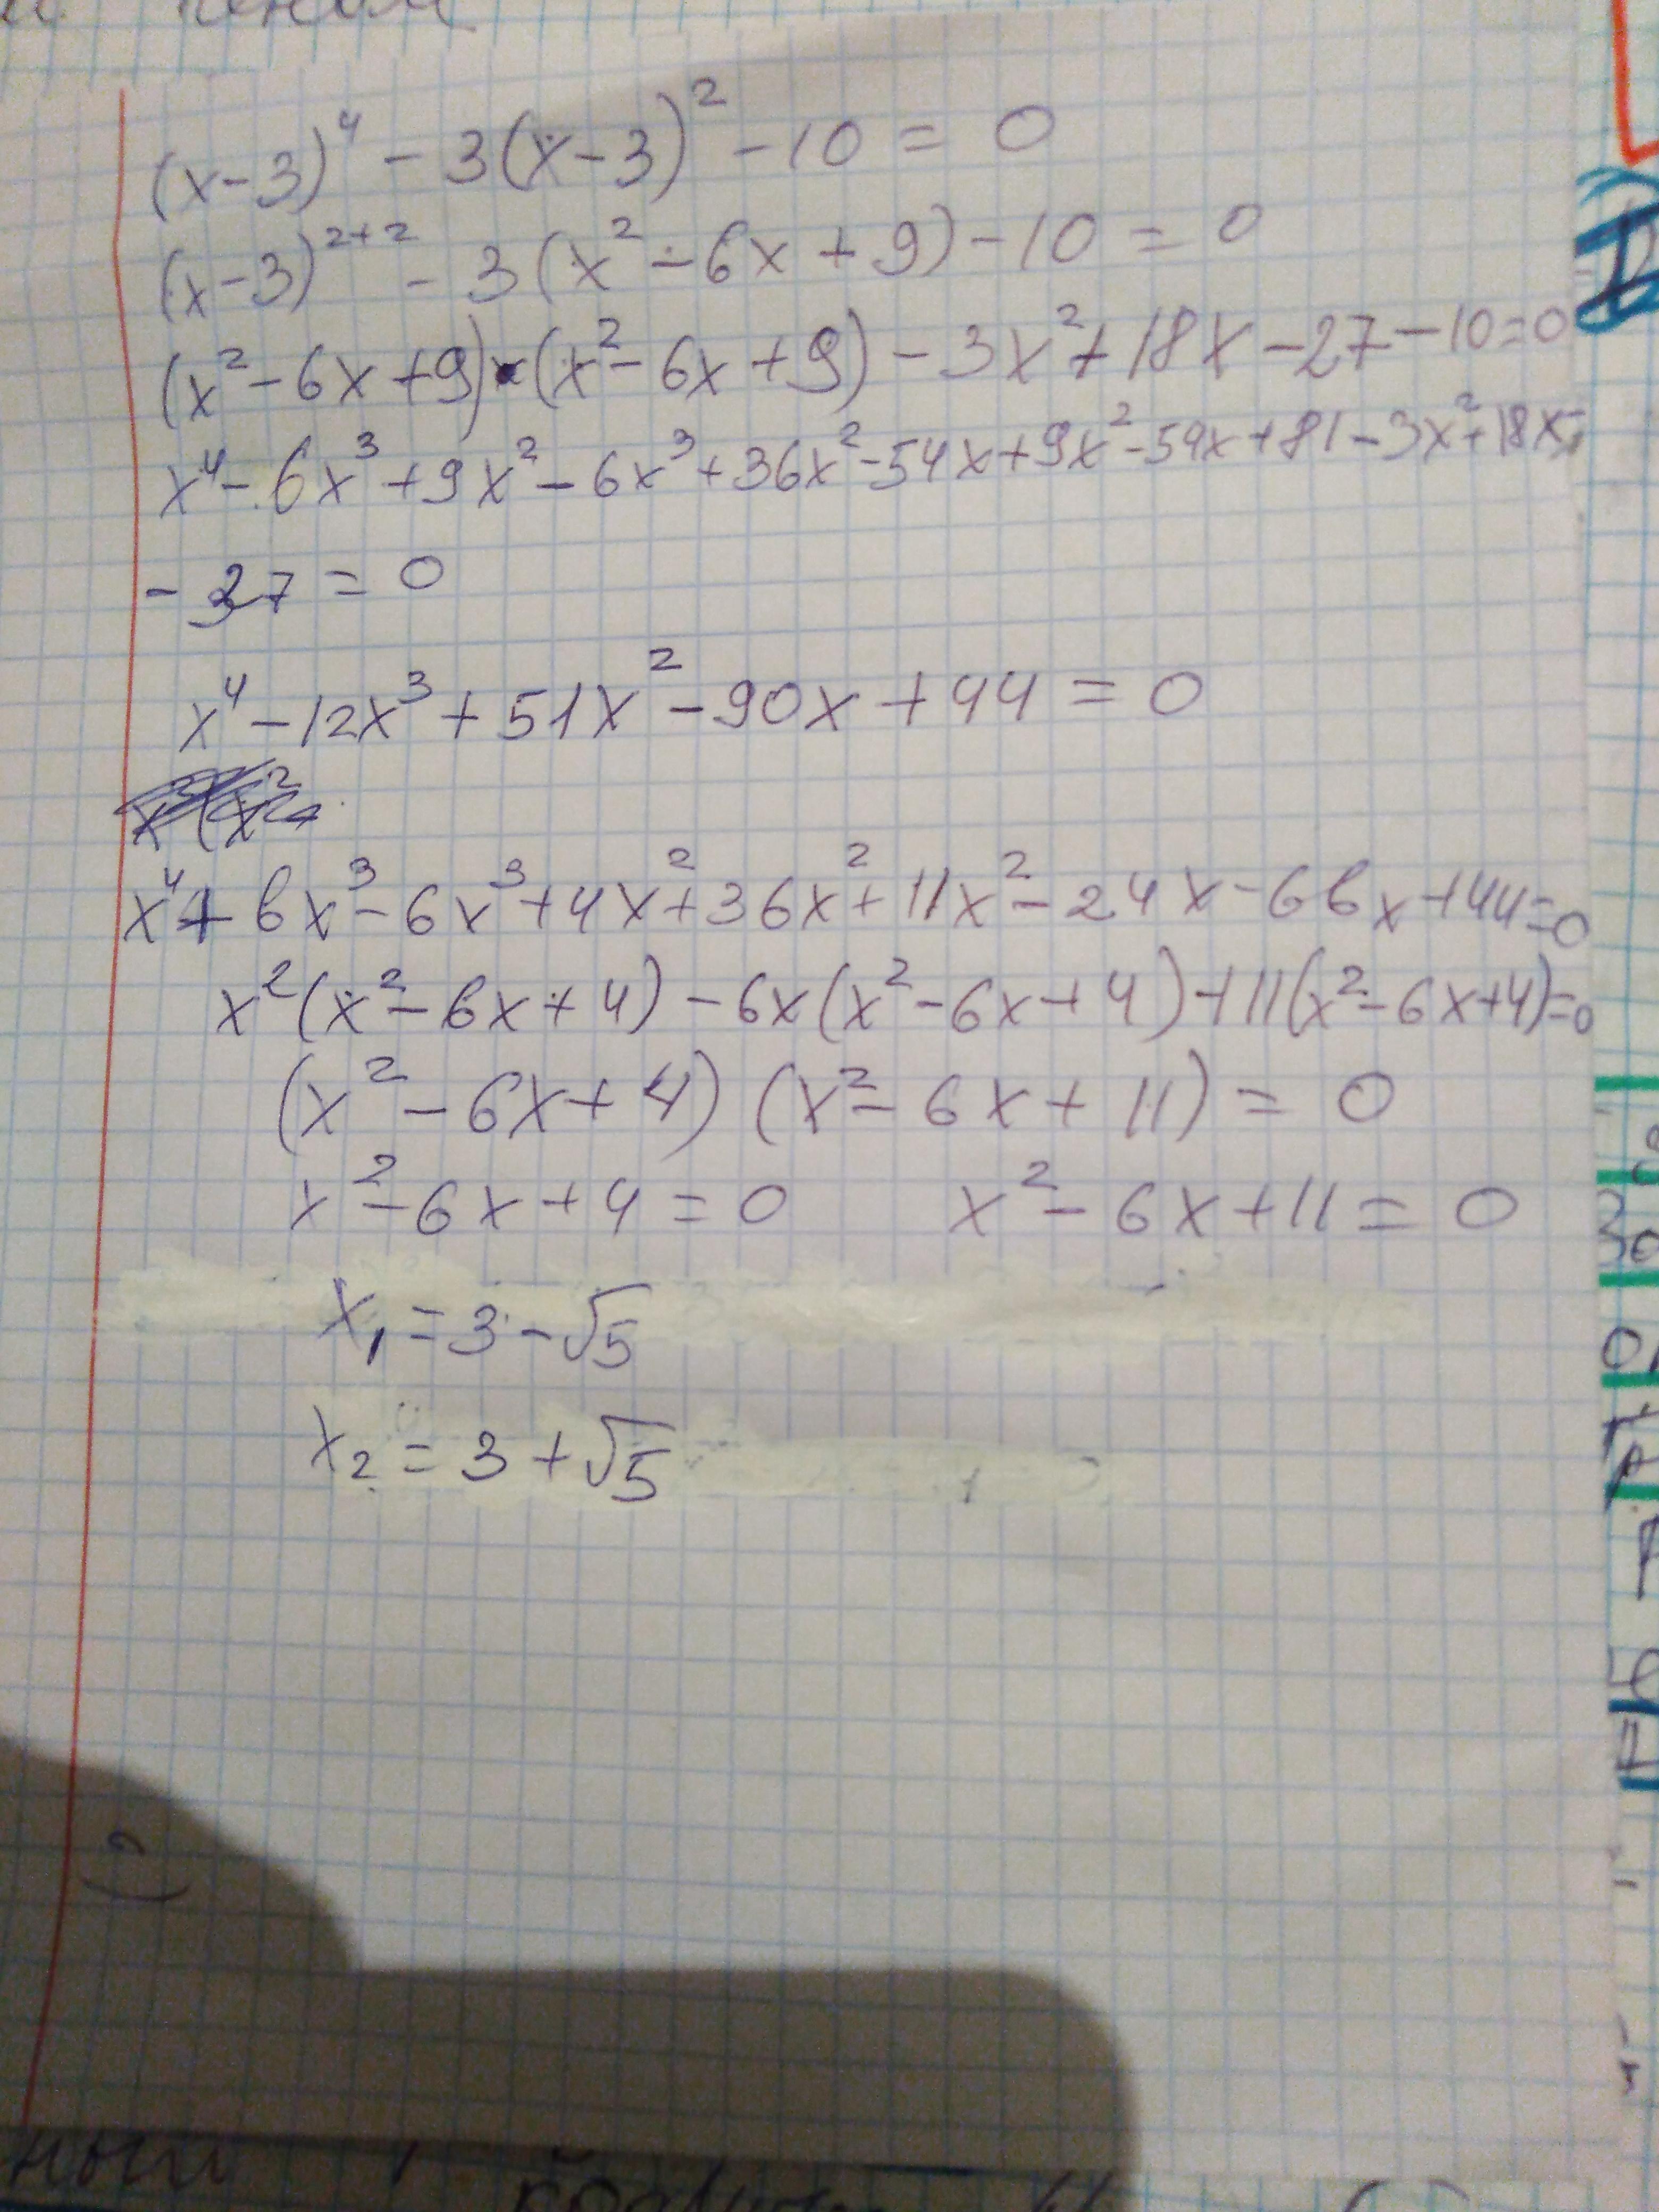 (x-3)⁴ - 3(x-3)² - 10 = 0
(x-3)²⁺² - 3(x² - 6x + 9) - 10 = 0
(x² - 6x + 9)·(x² - 6x + 9) - 3x² + 18x - 27 - 10 = 0
x⁴ - 6x³ + 9x² - 6x³ + 36x² - 54x + 9x² - 54x + 81 - 3x² + 18x -
- 37 = 0
x⁴ - 12x³ + 51x² - 90x + 44 = 0
x⁴ + 6x³ - 6x³ + 4x² + 36x² + 11x² - 24x - 66x + 44 = 0
x²(x² - 6x + 4) - 6x(x² - 6x + 4) + 11(x² - 6x + 4) = 0
(x² - 6x + 4) (x² - 6x + 11) = 0
x² - 6x + 4 = 0 x² - 6x + 11 = 0
x₁ = 3 - √5
x₂ = 3 + √5